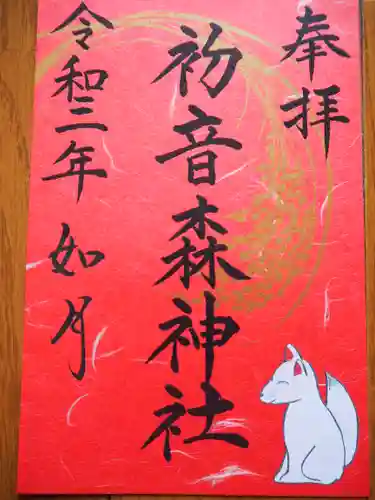 奉拝
初音森神社
令和三年如月